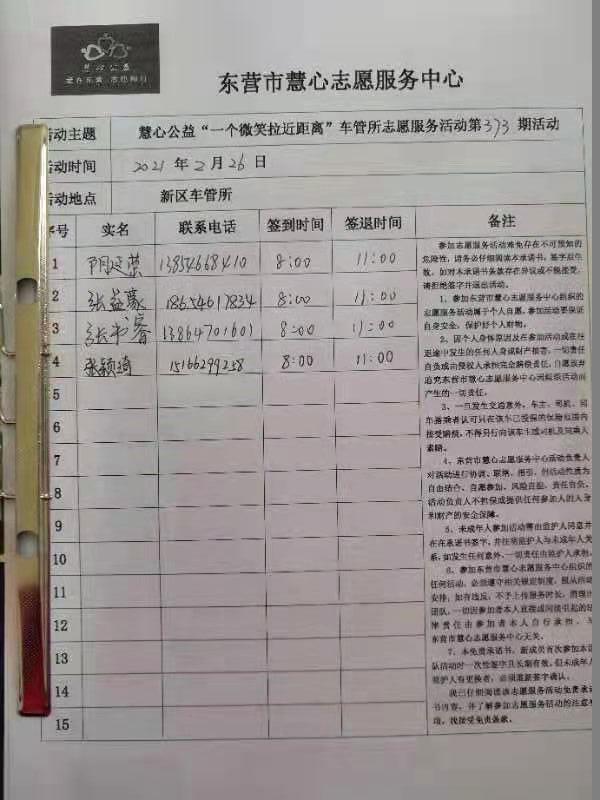 慧心公益
爱在东营 志愿同行
东营市慧心志愿服务中心
活动主题 慧心公益“一个微笑拉近距离”车管所志愿服务活动第373期活动
活动时间 2021年2月26日
活动地点 新区车管所
序号 实名 联系电话 签到时间 签退时间 备注
1 13854668410 8:00 11:00
2 张益豪 18654617834 8:00 11:00
3 13864701601 8:00 11:00
4 张颖琦 15166299258 8:00 11:00
5
6
7
8
9
10
11
12
13
14
15
参加志愿服务活动难免存在不可预知的
危险性，请务必仔细阅读本承诺书，签字后生
效。如对本承诺书条款存在异议或不能接受，
请拒绝签字并退出活动。
1、参加东营市慧心志愿服务中心组织的
志愿服务活动属于个人自愿。参加活动要保证
自身安全，保护好个人财物。
2、因个人身体原因及在参加活动或在往
返途中发生的任何人身或财产损害，一切责任
自负或由侵权人承担完全赔偿责任，自愿放弃
追究东营市慧心志愿服务中心因组织活动而
产生的一切责任。
3、一旦发生交通意外，车主、司机、同
车搭乘者认可只在该车已投保的保险范围内
接受赔偿，不得另行向该车主或司机及同乘人
索赔。
4、东营市慧心志愿服务中心活动负责人
对活动进行协调、联络、指引，但活动性质为
自由结合、自愿参加、风险自担、责任自负。
活动负责人不担保或提供任何参加人的人身
和财产的安全保障。
5、未成年人参加活动需由监护人同意并
在在承诺书签字，并注明监护人与未成年人关
系，如发生任何意外，一切责任由监护人承担。
6、参加东营市慧心志愿服务中心组织的
任何活动，必须遵守相关规定制度，服从活动
安排，如有违反，不予上传服务时长，清理出
团队，一切因参加者本人直接或间接引起的法
律责任由参加者本人自行承担，与
东营市慧心志愿服务中心无关。
7、本免责承诺书，新成员首次参加本团
队活动时一次性签字且长期有效。但未成年人
监护人有更换者，必须重新签字确认。
我已仔细阅读该志愿服务活动免责承诺
书内容，并了解参加志愿服务活动的注意事
项，我接受免责条款。